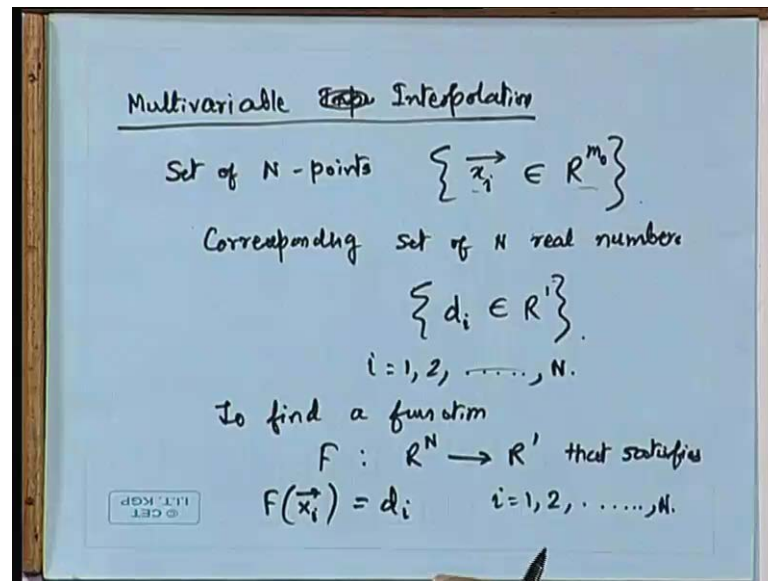 Multivariable Interpolation
Set of N-points { x⃗ᵢ ∈ R^m₀ }
Corresponding set of N real numbers
{ dᵢ ∈ R¹ }.
i = 1, 2, ......, N.
To find a function
F : R^N → R¹ that satisfies
F(x⃗ᵢ) = dᵢ i = 1, 2, ......, N.
© CET
I.I.T. KGP